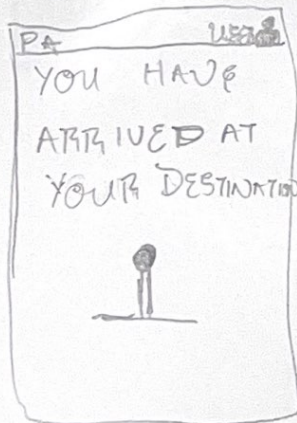 PA USER
YOU HAVE
ARRIVED AT
YOUR DESTINATION